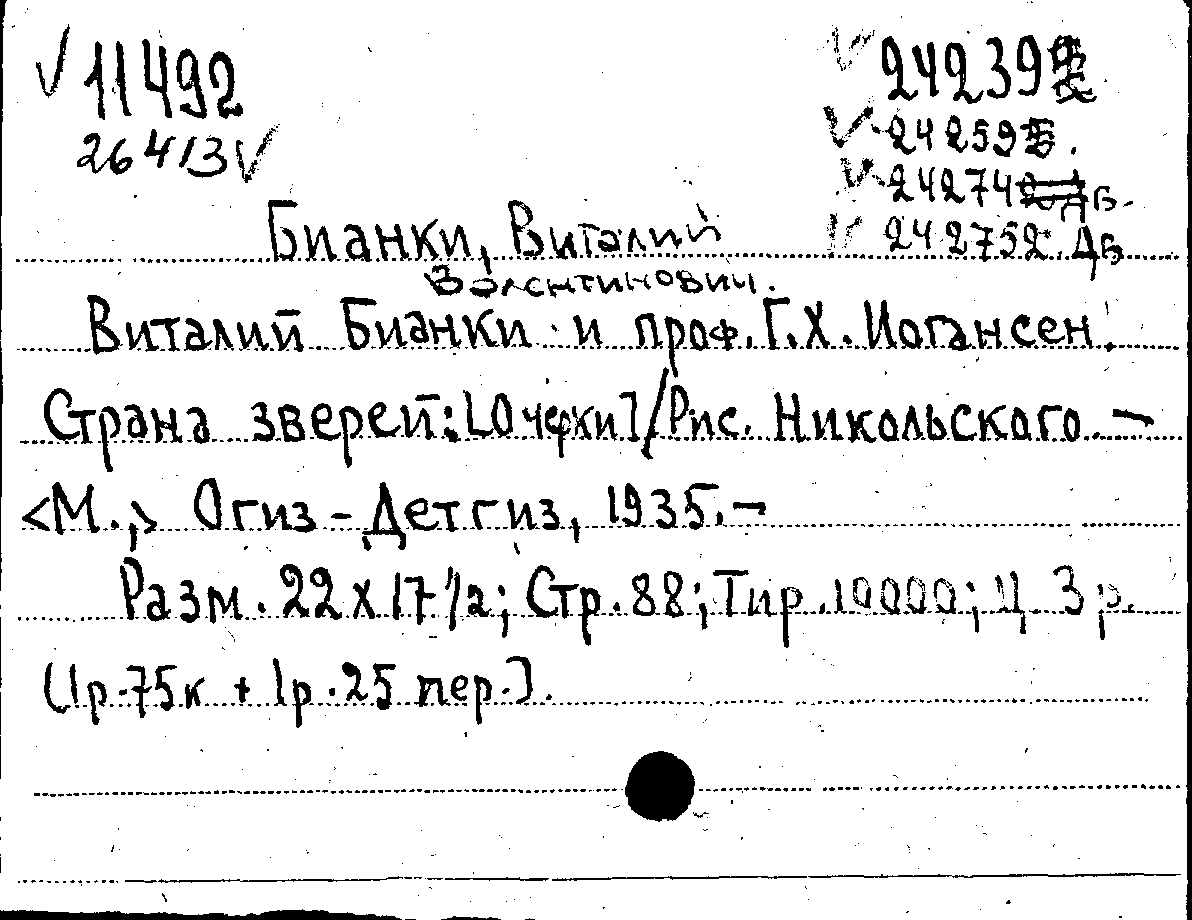 11492
26413
24239
24259
24274 Дв.
242752 Дв
Бианки, Виталий
Валентинович.
Виталий Бианки и проф. Г.Х. Иогансен.
Страна зверей: [Очерки] / Рис. Никольского. —
<М.,> Огиз - Детгиз, 1935. —
Разм. 22 x 17 1/2; Стр. 88; Тир. 10000; Ц. 3 р.
(1р. 75к + 1р. 25 пер.).